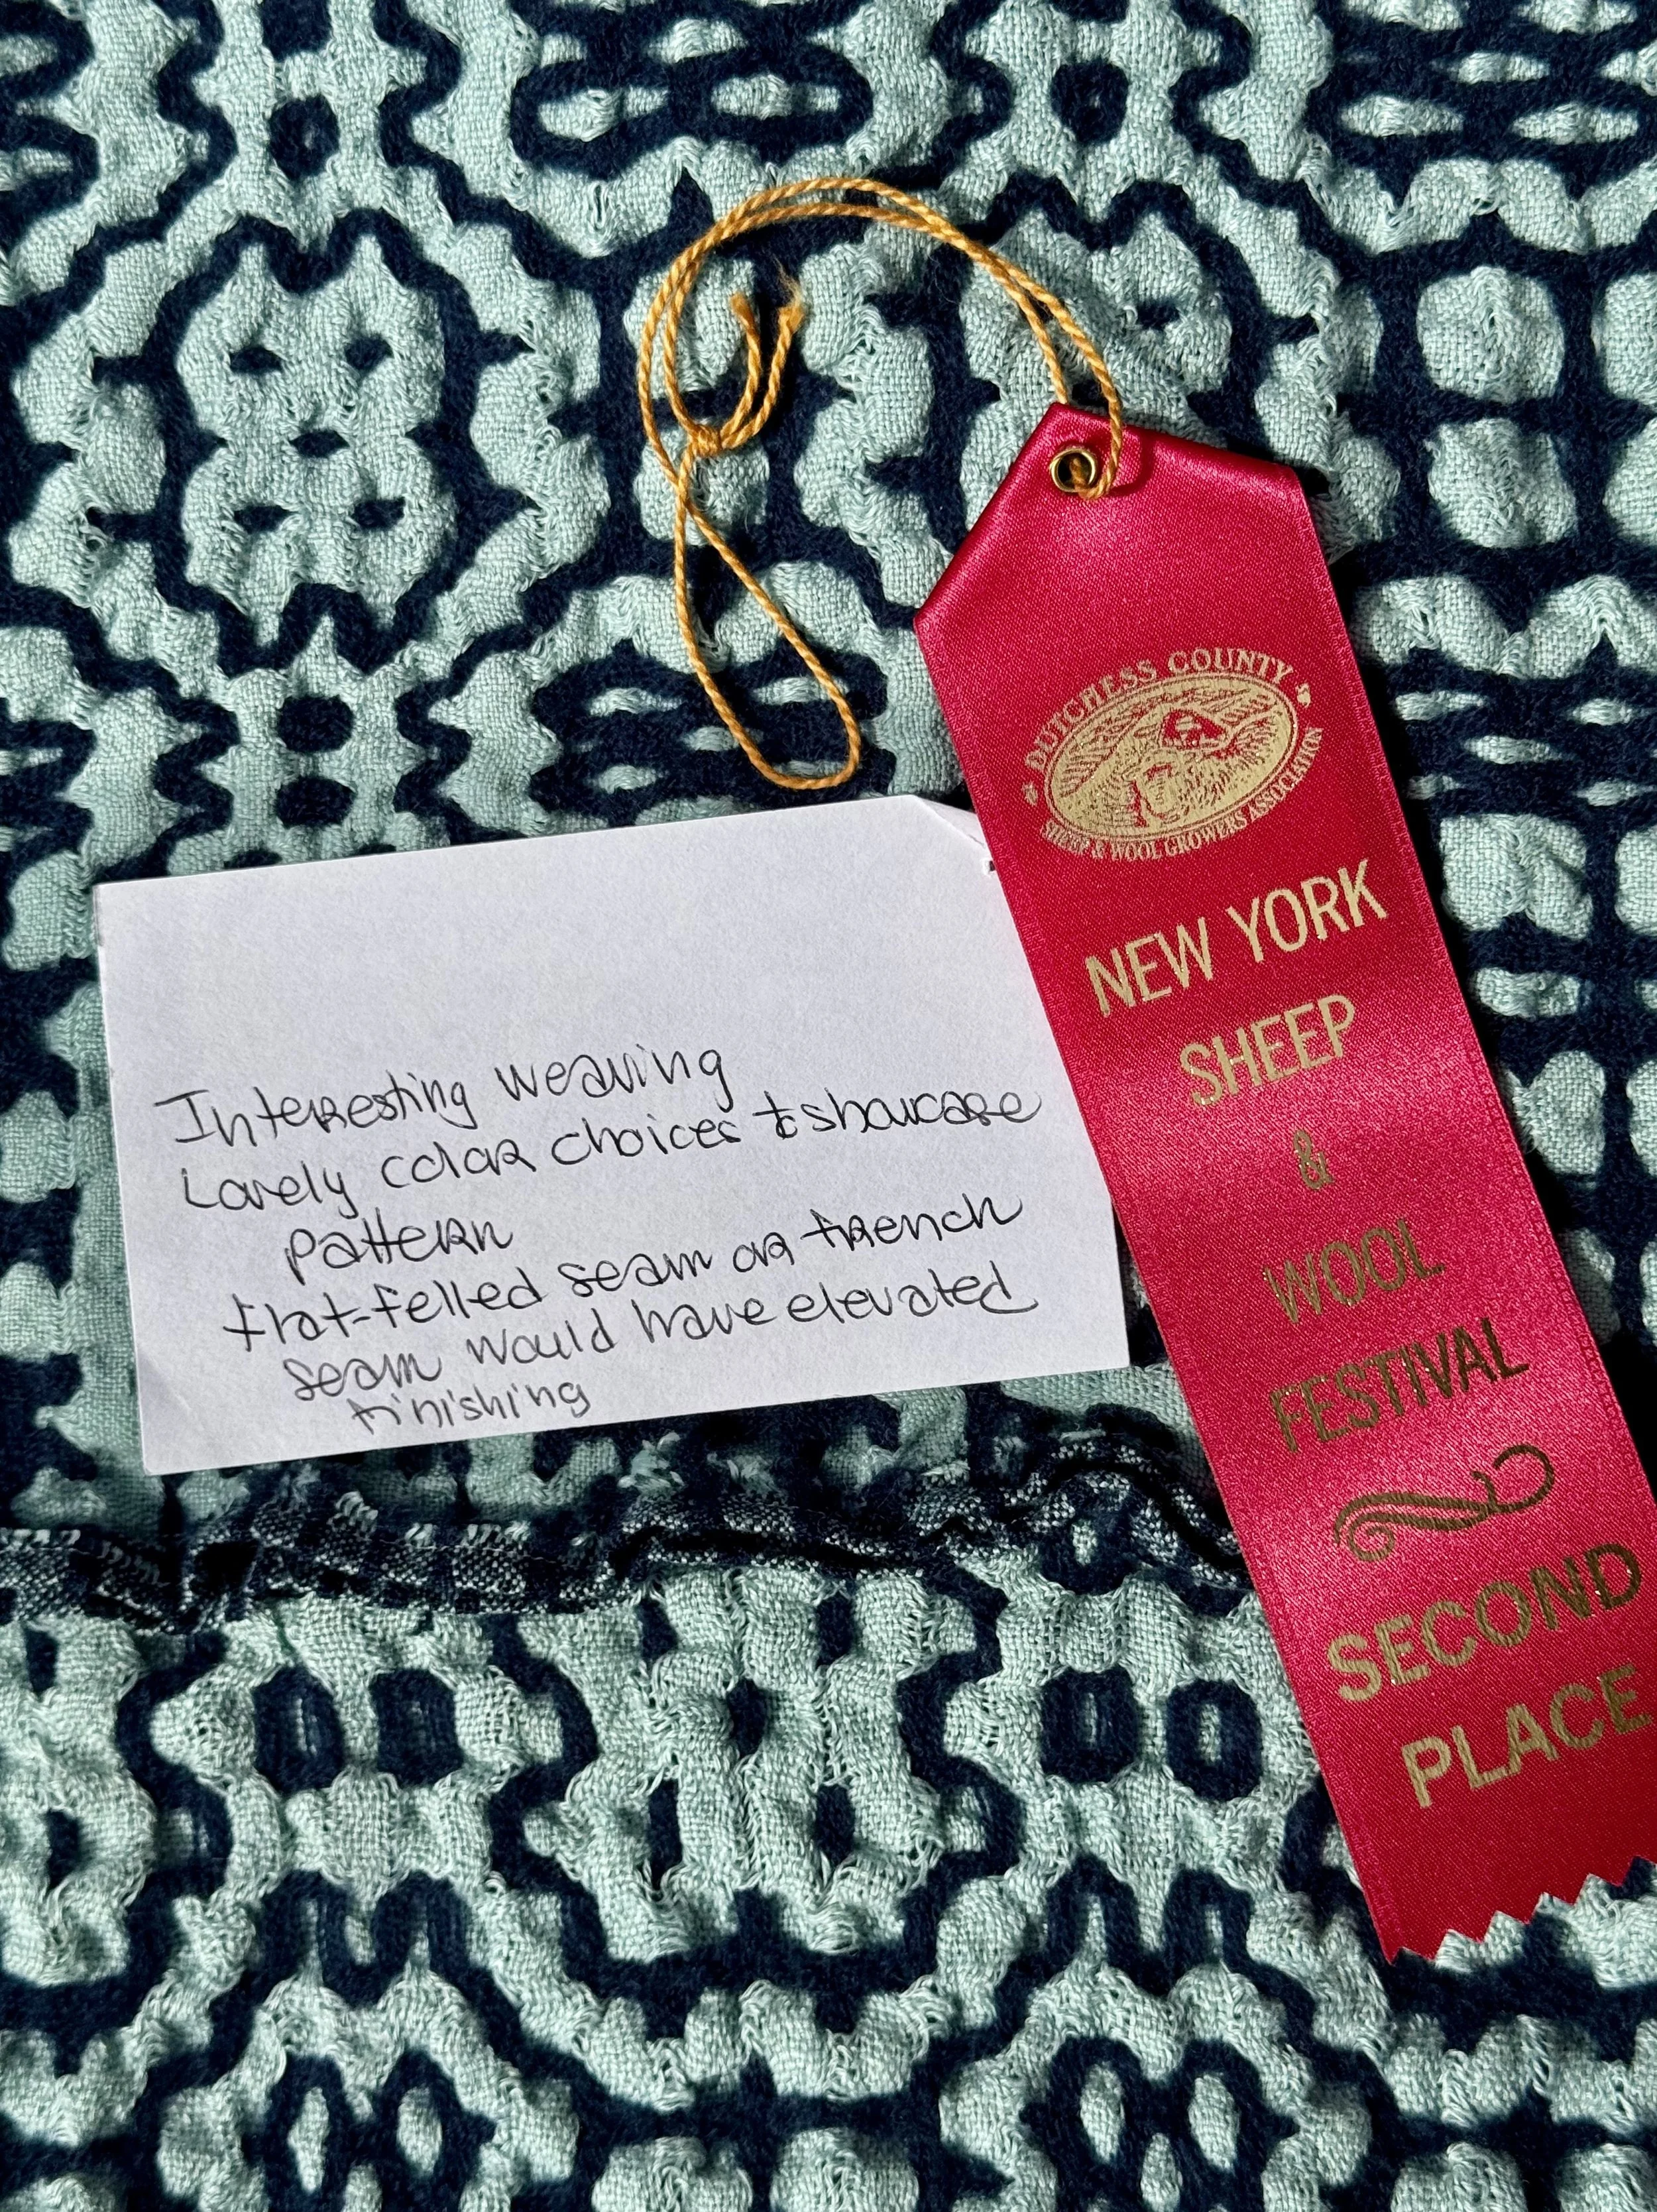 DUTCHESS COUNTY
SHEEP & WOOL GROWERS ASSOCIATION
NEW YORK
SHEEP
&
WOOL
FESTIVAL
SECOND
PLACE
Interesting weaving
Lovely color choices to showcase
pattern
flat-felled seam or french
seam would have elevated
finishing